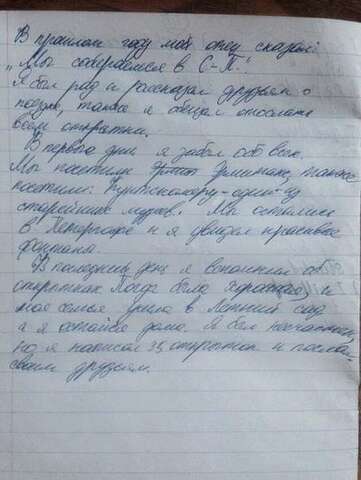 В прошлом году мой отец сказал:
„Мы собираемся в С-П."
Я был рад и рассказал друзьям о
также я обещал
всем открытки.
В первые дни я забыл обо всём.
Мы посетили Эрмитаж, также
посетили Кунтскамеру - один из
старейших музеев. Мы
в Петергофе и я увидел красивые
фонтаны.
В последний день я вспомнил об
открытках когда была и
моя семья ушла в Летний сад
а я остался дома. Я был несчастен,
но я написал открыток и послал
своим друзьям.